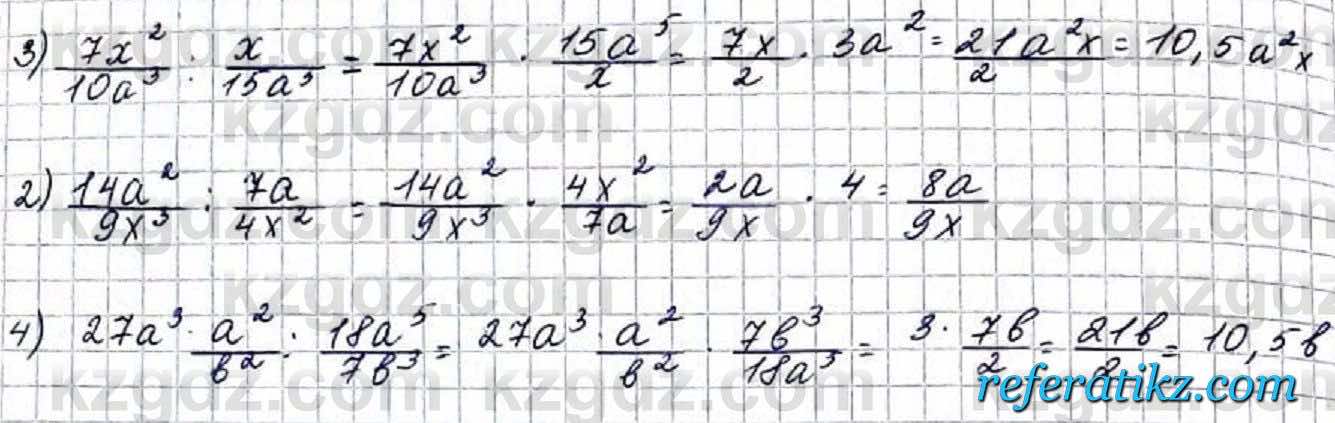 3) 7x²/10a³ : x/15a³ = 7x²/10a³ · 15a⁵/x = 7x/2 · 3a² = 21a²x/2 = 10,5a²x
2) 14a²/9x³ : 7a/4x² = 14a²/9x³ · 4x²/7a = 2a/9x · 4 = 8a/9x
4) 27a³ · a²/в² : 18a⁵/7в³ = 27a³ · a²/в² · 7в³/18a³ = 3 · 7в/2 = 21в/2 = 10,5в
kzgdz.com
referatikz.com